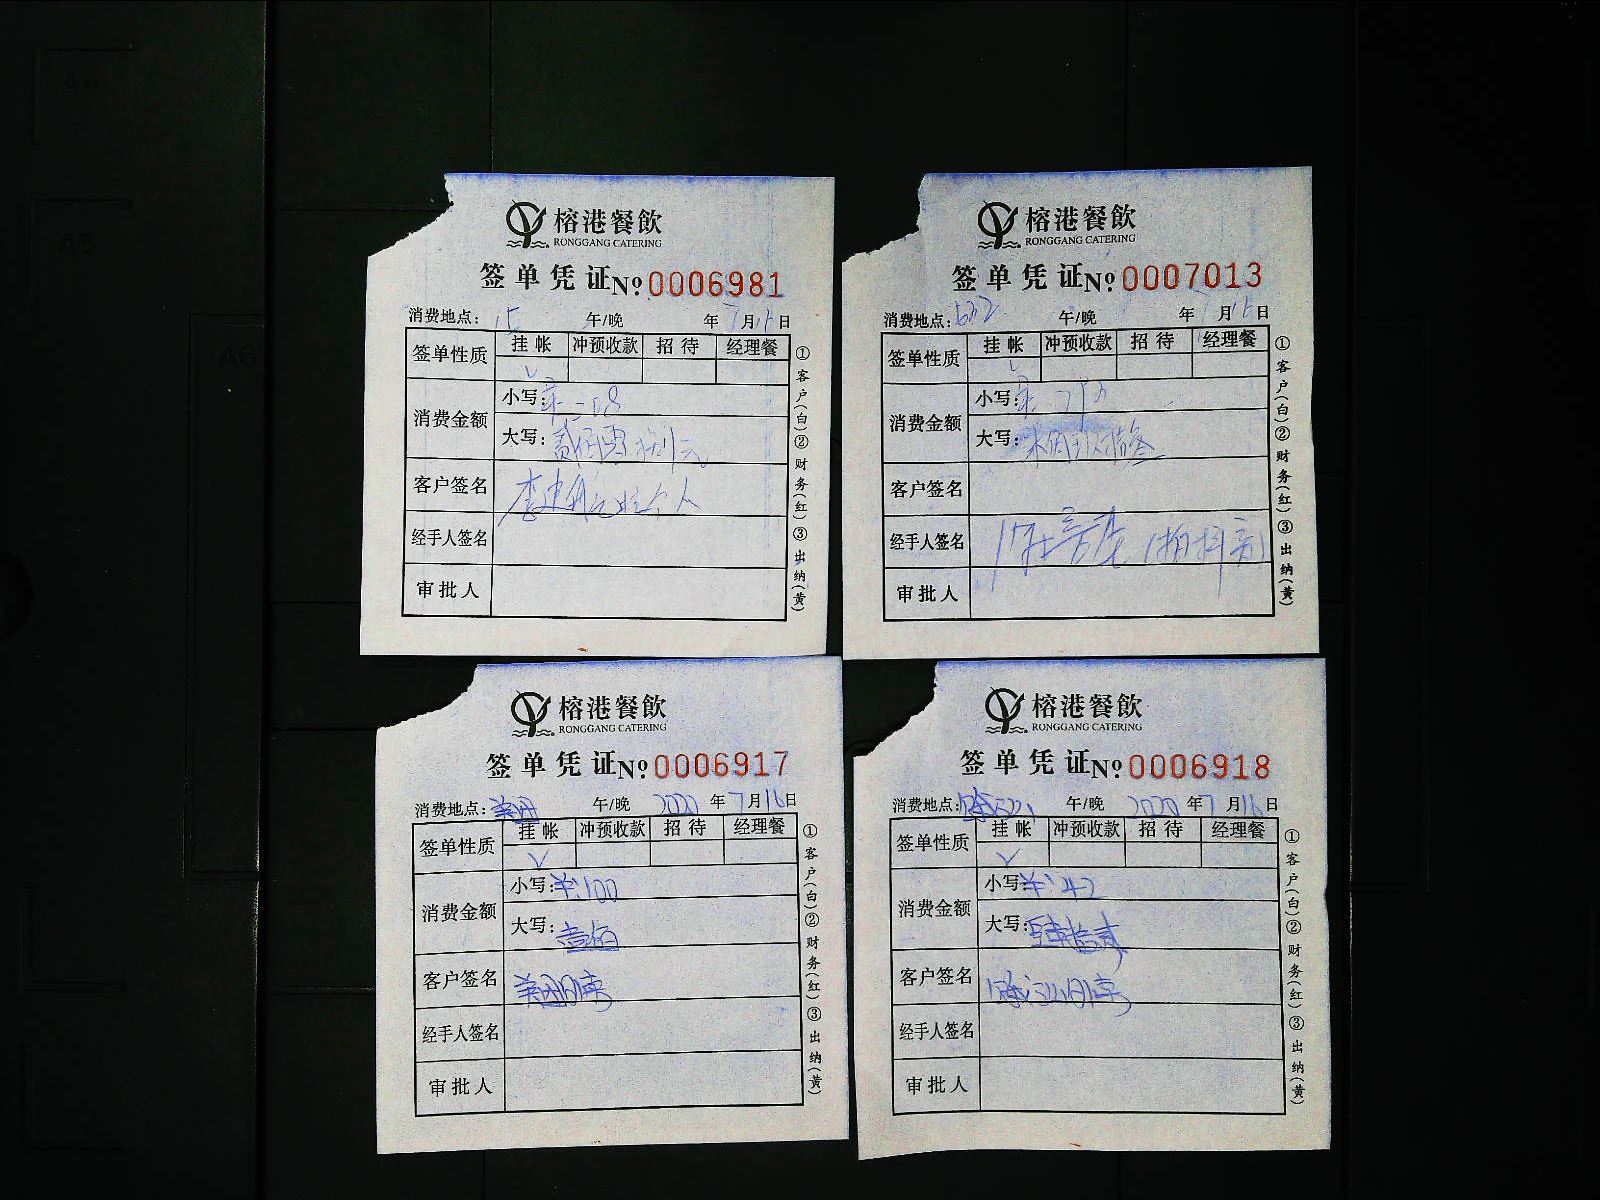 榕港餐飲
RONGGANG CATERING
签单凭证 № 0006981
消费地点: 15 午/晚 年 7月 日
签单性质 挂帐 冲预收款 招待 经理餐
√
消费金额 小写:
大写: 贰佰 捌元
客户签名 李建 个人
经手人签名
审批人
①客户(白)②财务(红)③出纳(黄)
榕港餐飲
RONGGANG CATERING
签单凭证 № 0007013
消费地点: 午/晚 年 7月 日
签单性质 挂帐 冲预收款 招待 经理餐
√
消费金额 小写:
大写:
客户签名
经手人签名 (拍抖音)
审批人
①客户(白)②财务(红)③出纳(黄)
榕港餐飲
RONGGANG CATERING
签单凭证 № 0006917
消费地点: 美团 午/晚 2020年7月16日
签单性质 挂帐 冲预收款 招待 经理餐
√
消费金额 小写: ¥:100
大写: 壹佰
客户签名 美团
经手人签名
审批人
①客户(白)②财务(红)③出纳(黄)
榕港餐飲
RONGGANG CATERING
签单凭证 № 0006918
消费地点: 午/晚 2020年7月16日
签单性质 挂帐 冲预收款 招待 经理餐
√
消费金额 小写: ¥:
大写: 拾贰
客户签名
经手人签名
审批人
①客户(白)②财务(红)③出纳(黄)